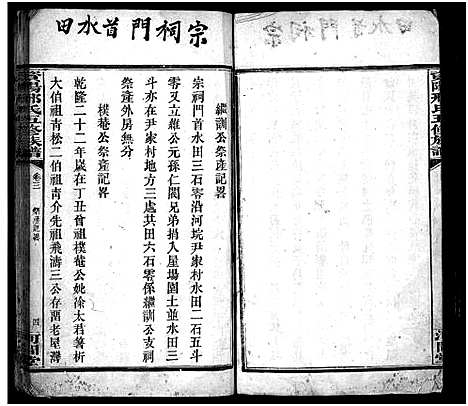 宗祠門首水田
繼訓公祭產記畧
宗祠門首水田三石零沿河垸尹家村水田二石五斗
零又立維公元孫仁閱兄弟捐入屋場園土並水田三
斗亦在尹家村方三處共田六石零係繼訓公支祠
祭產外房無分
樸菴公祭產記畧
乾隆二十二年歲在丁丑曾祖樸菴公妣徐太君籌析
大伯祖青松二伯祖青介先祖飛濤三公存蘭老屋灣
氏五修族譜
卷三
祭產記畧
四
河間堂
宗祠門首水田
氏五修族譜
河間堂